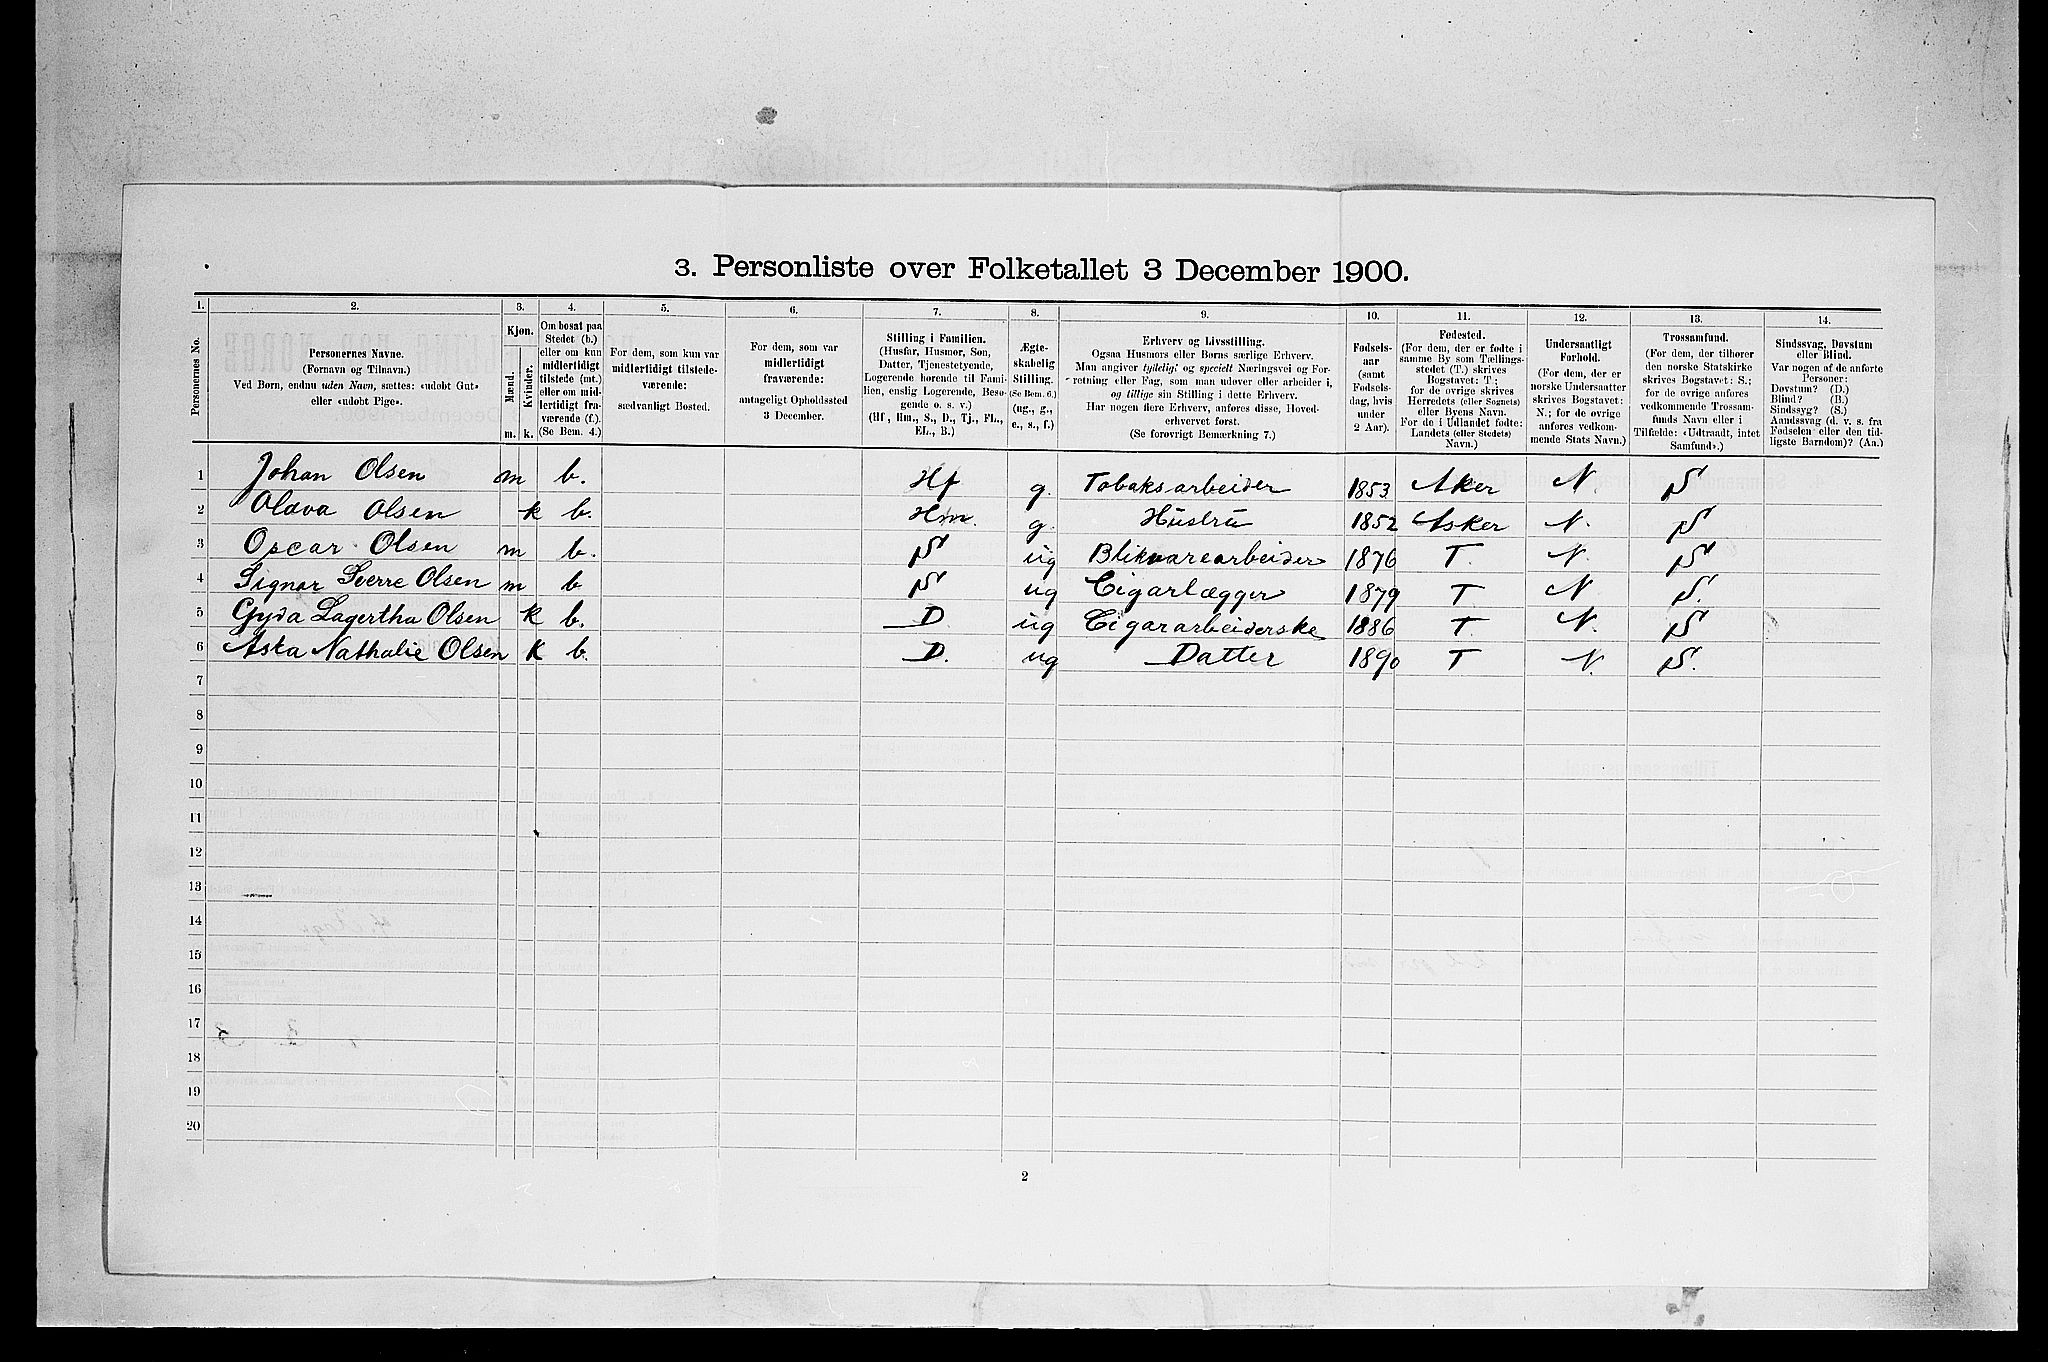 3. Personliste over Folketallet 3 December 1900.
1. 2. 3. 4. 5. 6. 7. 8. 9. 10. 11. 12. 13. 14.
Personernes No.
Personernes Navne.
(Fornavn og Tilnavn.)
Ved Børn, endnu uden Navn, sættes: «udøbt Gut»
eller «udøbt Pige».
Kjøn.
Mænd.
Kvinder.
m. k.
Om bosat paa
Stedet (b.)
eller om kun
midlertidigt
tilstede (mt.)
eller om mid-
lertidigt fra-
værende (f.).
(Se Bem. 4.)
For dem, som kun var
midlertidigt tilstede-
værende:
sædvanligt Bosted.
For dem, som var
midlertidigt
fraværende:
antageligt Opholdssted
3 December.
Stilling i Familien.
(Husfar, Husmor, Søn,
Datter, Tjenestetyende,
Logerende hørende til Fami-
lien, enslig Logerende, Besø-
gende o. s. v.)
(Hf, Hm., S., D., Tj., FL.,
EL., B.)
Ægte-
skabelig
Stilling.
(Se Bem. 6.)
(ug., g.,
e., s., f.)
Erhverv og Livsstilling.
Ogsaa Husmors eller Børns særlige Erhverv.
Man angiver tydeligt og specielt Næringsvei og For-
retning eller Fag, som man udøver eller arbeider i,
og tillige sin Stilling i dette Erhverv.
Har nogen flere Erhverv, anføres disse, Hoved-
erhvervet først.
(Se forøvrigt Bemærkning 7.)
Fødsels-
aar
(samt
Fødsels-
dag, hvis
under
2 Aar).
Fødested.
(For dem, der er fødte i
samme By som Tællings-
stedet (T.) skrives
Bogstavet: T;
for de øvrige skrives
Herredets (eller Sognets)
eller Byens Navn.
For de i Udlandet fødte:
Landets (eller Stedets)
Navn.)
Undersaatligt
Forhold.
(For dem, der er
norske Undersaatter
skrives Bogstavet:
N.; for de øvrige
anføres vedkom-
mende Stats Navn.)
Trossamfund.
(For dem, der tilhører
den norske Statskirke
skrives Bogstavet: S.;
for de øvrige anføres
vedkommende Trossam-
funds Navn eller i
Tilfælde: «Udtraadt, intet
Samfund».)
Sindssvag, Døvstum
eller Blind.
Var nogen af de anførte
Personer:
Døvstum? (D.)
Blind? (B.)
Sindssyg? (S.)
Aandssvag (d. v. s. fra
Fødselen eller den tid-
ligste Barndom)? (Aa.)
1 Johan Olsen m b. Hf g. Tobaksarbeider 1853 Aker N. S
2 Olava Olsen k b. Hm. g. Hustru 1852 Asker N. S
3 Oscar Olsen m b. S ug Blikvarearbeider 1876 T. N. S
4 Signar Sverre Olsen m b S ug Cigarlægger 1879 T N S.
5 Gyda Lagertha Olsen k b. D ug Cigararbeiderske 1886 T. N. S
6 Aska Nathalie Olsen k b. D. ug Datter 1890 T N. S.
7
8
9
10
11
12
13
14
15
16
17
18
19
20
2